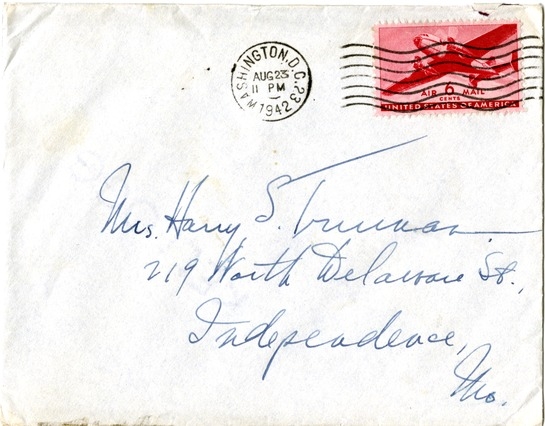 WASHINGTON, D.C. 23
AUG 23
11 PM
1942
AIR 6 MAIL
CENTS
UNITED STATES OF AMERICA
Mrs. Harry S. Truman.
219 North Delaware St.,
Independence,
Mo.